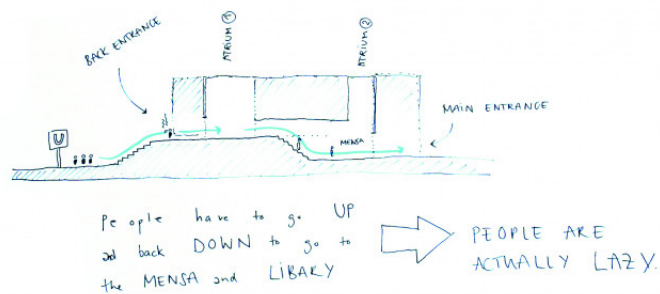 ATRIUM ①
ATRIUM ②
BACK ENTRANCE
MAIN ENTRANCE
U
MENSA
People have to go UP
and back DOWN to go to
the MENSA and LIBARY
PEOPLE ARE
ACTUALLY LAZY.